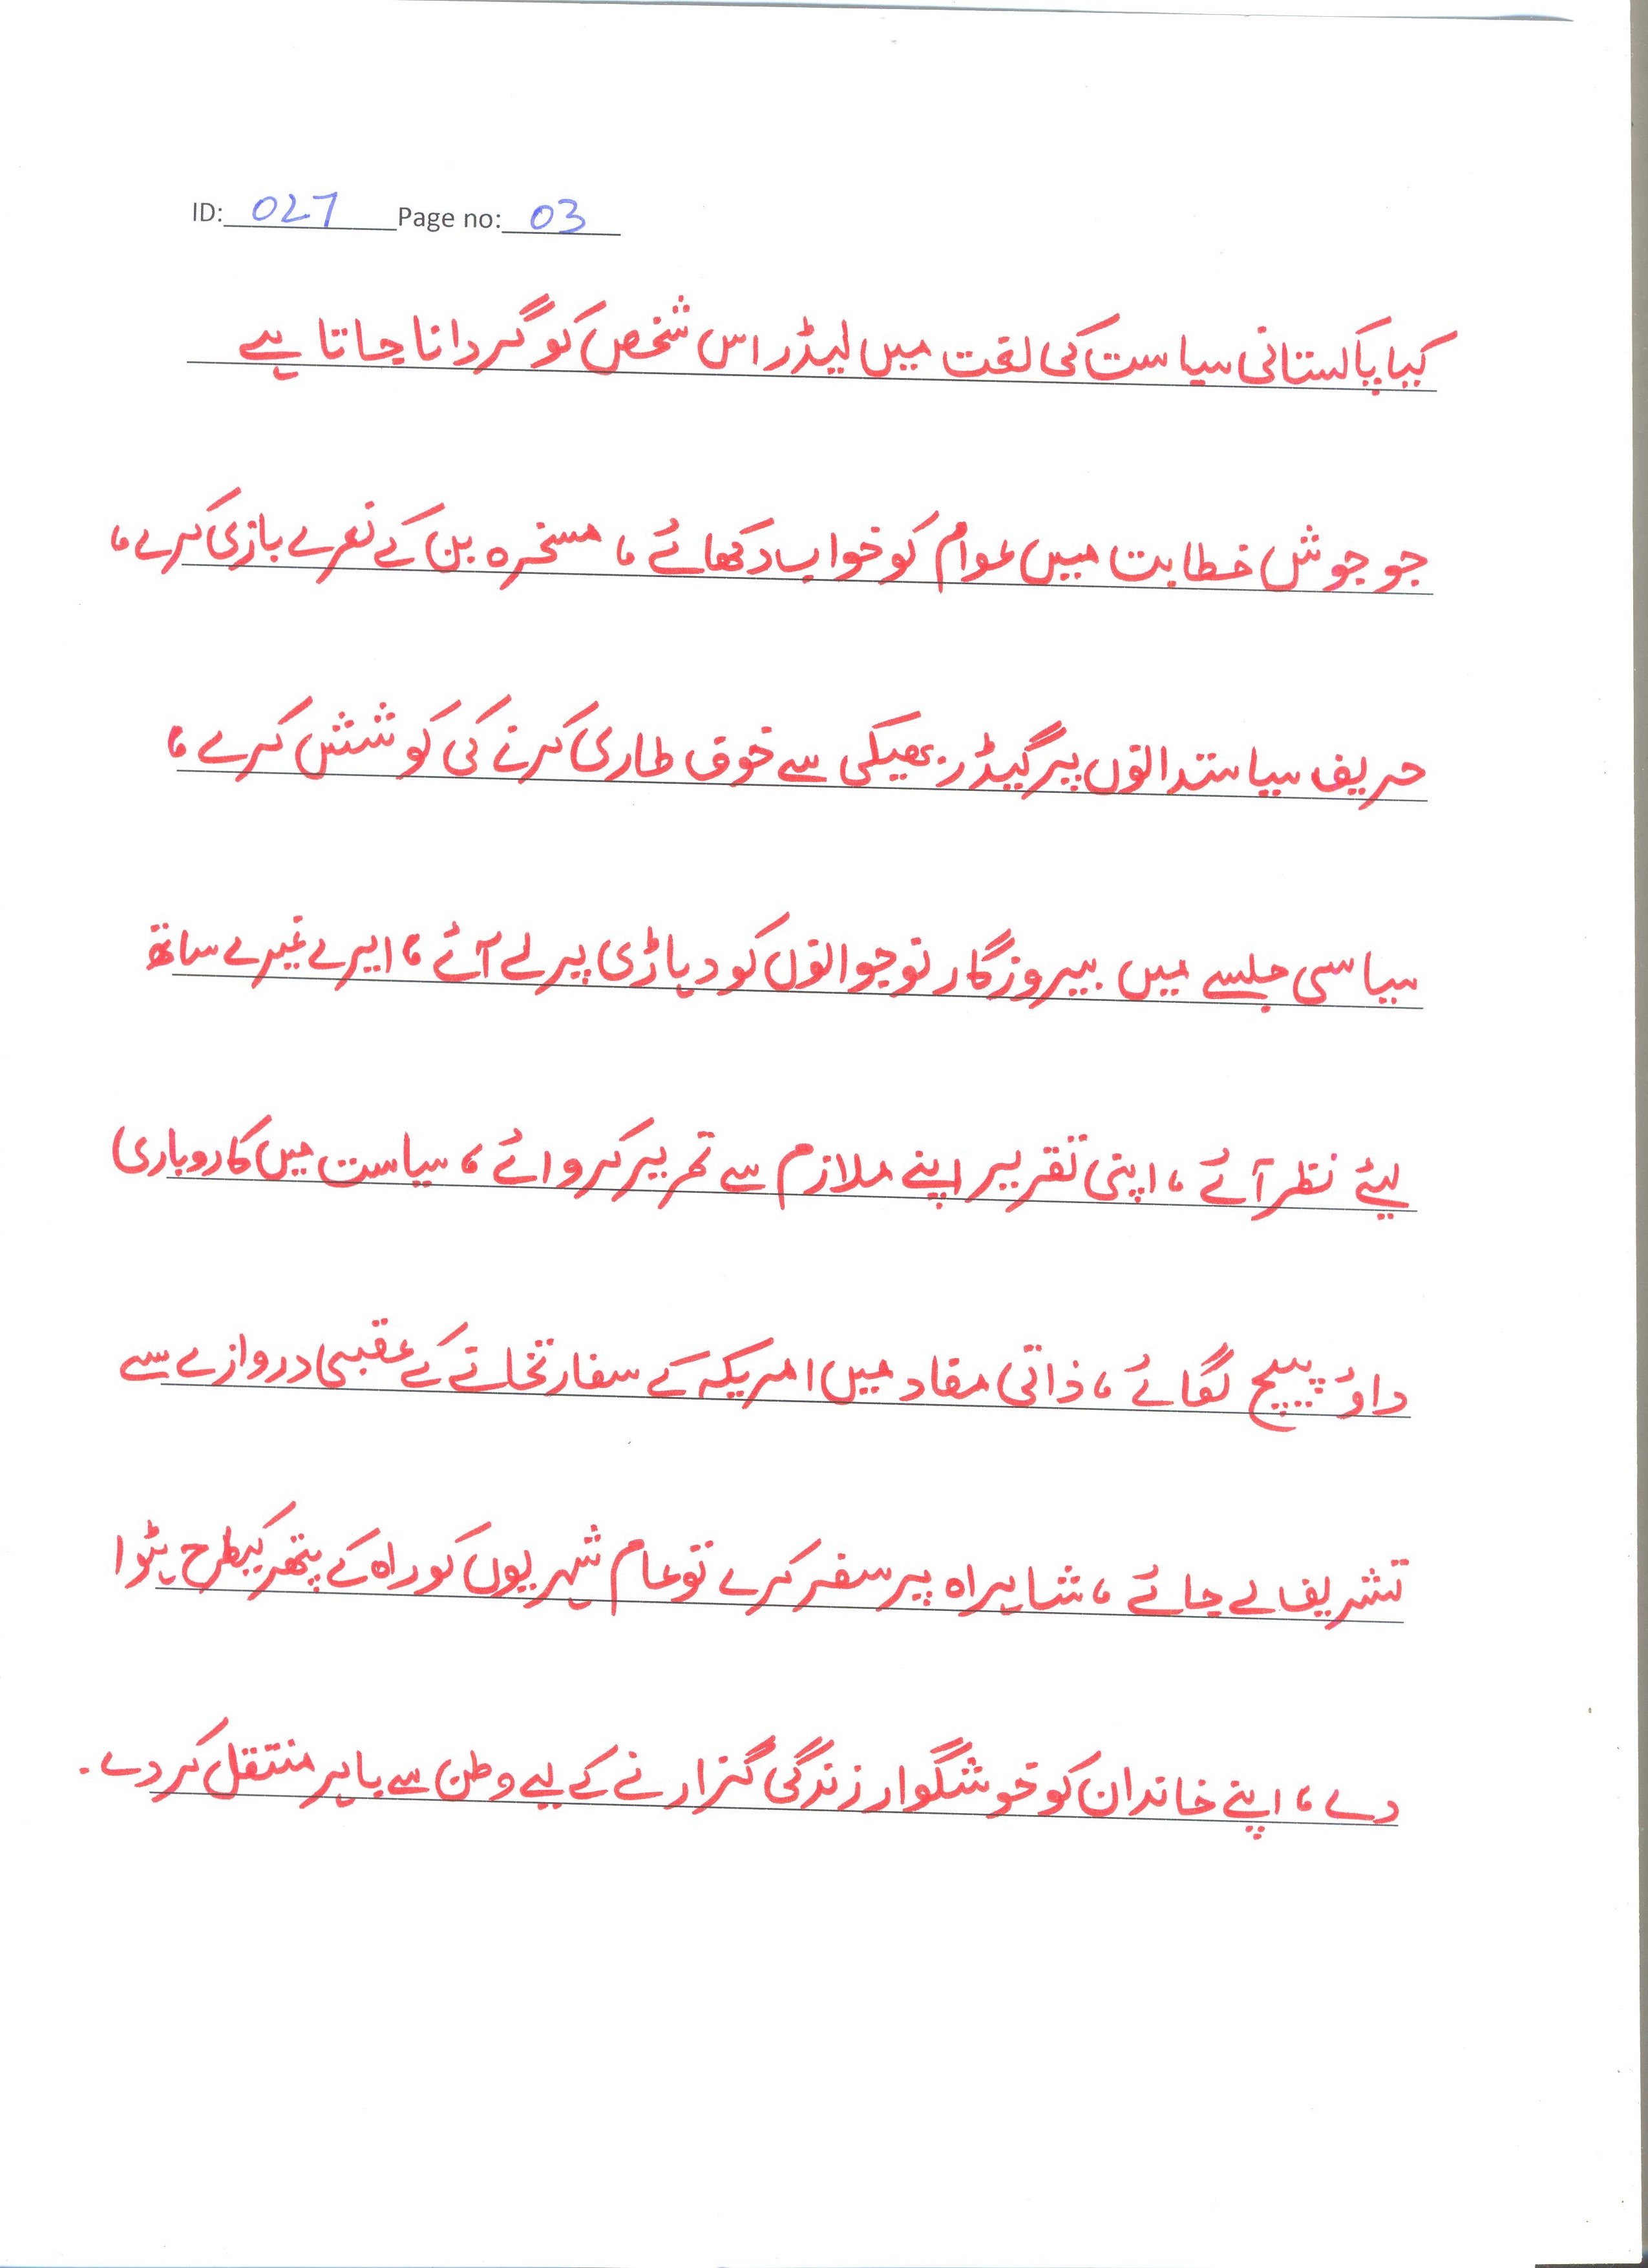 ID: 027 Page no: 03
کیا پاکستانی سیاست کی لغت میں لیڈر اس شخص کو گردانا جاتا ہے
جو جوش خطابت میں عوام کو خواب دکھائے ، مسخرہ بن کے نعرے بازی کرے ،
حریف سیاستدانوں پر گیڈر بھبکی سے خوف طاری کرنے کی کوشش کرے ،
سیاسی جلسے میں بیروزگار نوجوانوں کو دہاڑی پر لے آئے ، ایرے غیرے ساتھ
لیئے نظر آئے ، اپنی تقریر اپنے ملازم سے تحریر کروائے ، سیاست میں کاروباری
داؤ پیچ لگائے ، ذاتی مفاد میں امریکہ کے سفارتخانے کے عقبی دروازے سے
تشریف لے جائے ، شاہراہ پر سفر کرے تو عام شہریوں کو راہ کے پتھر کیطرح ہٹوا
دے ، اپنے خاندان کو خوشگوار زندگی گزارنے کے لیے وطن سے باہر منتقل کر دے .